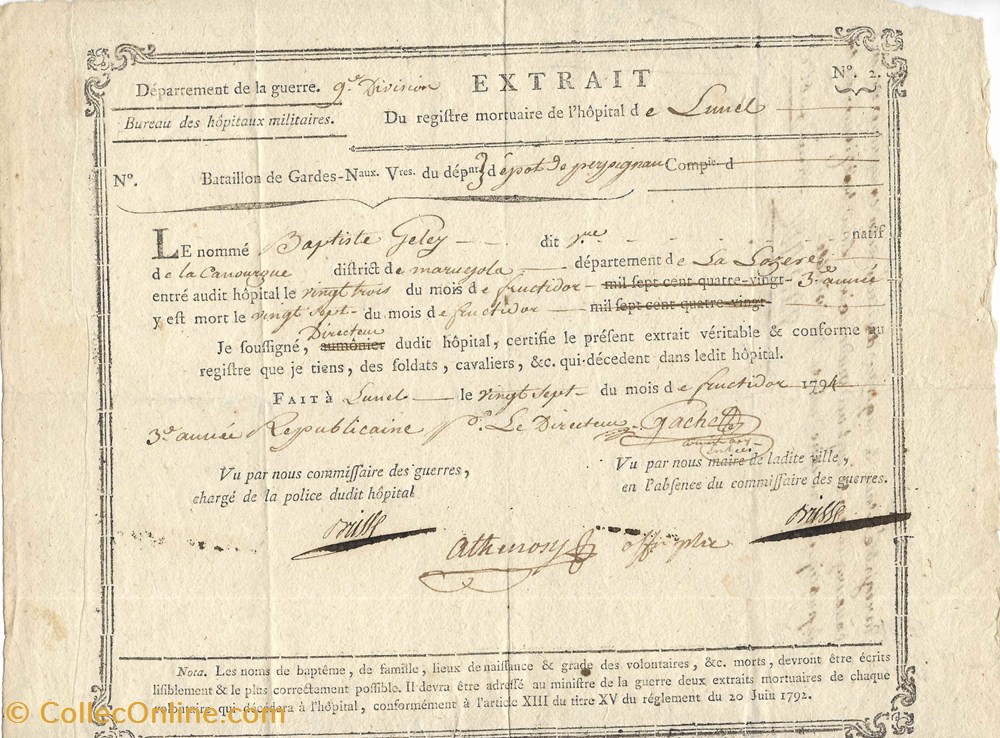 Nº. 2.
EXTRAIT
Département de la guerre. 9.e Division
Du registre mortuaire de l'hôpital de Lunel
Bureau des hôpitaux militaires.
Nº. Bataillon de Gardes-Naux. Vres. du dépnt. dépot de perpignan Compie. d
LE nommé Baptiste Geley dit natif
de la Canourgue district de maruejols département de La Lozere
entré audit hôpital le vingt trois du mois de fructidor mil sept cent quatre-vingt 3.e année
y est mort le vingt sept du mois de fructidor mil sept cent quatre-vingt
Directeur
Je soussigné, aumônier dudit hôpital, certifie le présent extrait véritable & conforme au
registre que je tiens, des soldats, cavaliers, &c. qui décedent dans ledit hôpital.
FAIT à Lunel le vingt sept du mois de fructidor 1794
3.e année Republicaine Le Directeur Gachet
Vu par nous commissaire des guerres,
chargé de la police dudit hôpital
Vu par nous maire de ladite ville,
en l'absence du commissaire des guerres.
Nota. Les noms de baptême, de famille, lieux de naissance & grade des volontaires, &c. morts, devront être écrits
lisiblement & le plus correctement possible. Il devra être adressé au ministre de la guerre deux extraits mortuaires de chaque
volontaire qui décédera à l'hôpital, conformément à l'article XIII du titre XV du réglement du 20 Juin 1792.
© CollecOnline.com